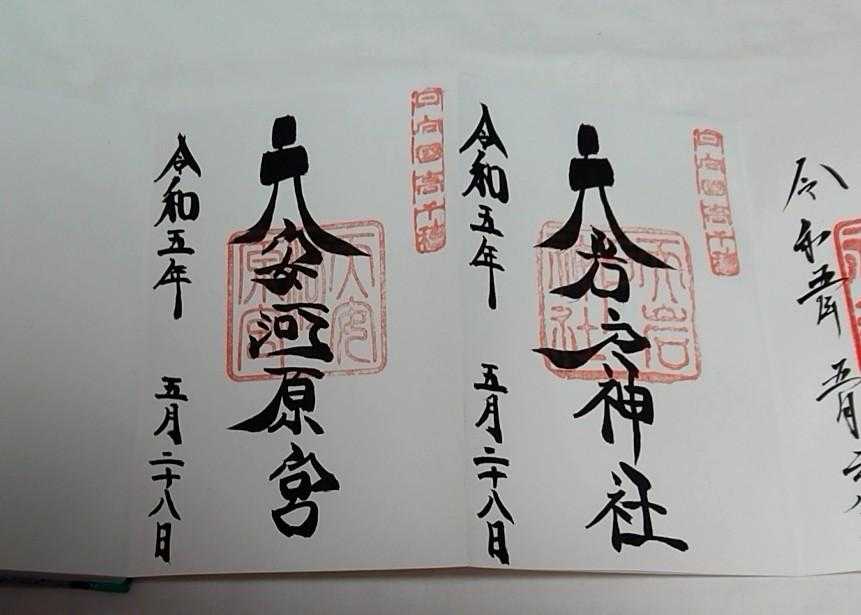 令和五年 五月二十八日
日向国高千穂
天岩戸神社
天岩戸神社
令和五年 五月二十八日
日向国高千穂
天安河原宮
天安河原宮
令和五年 五月二十八日